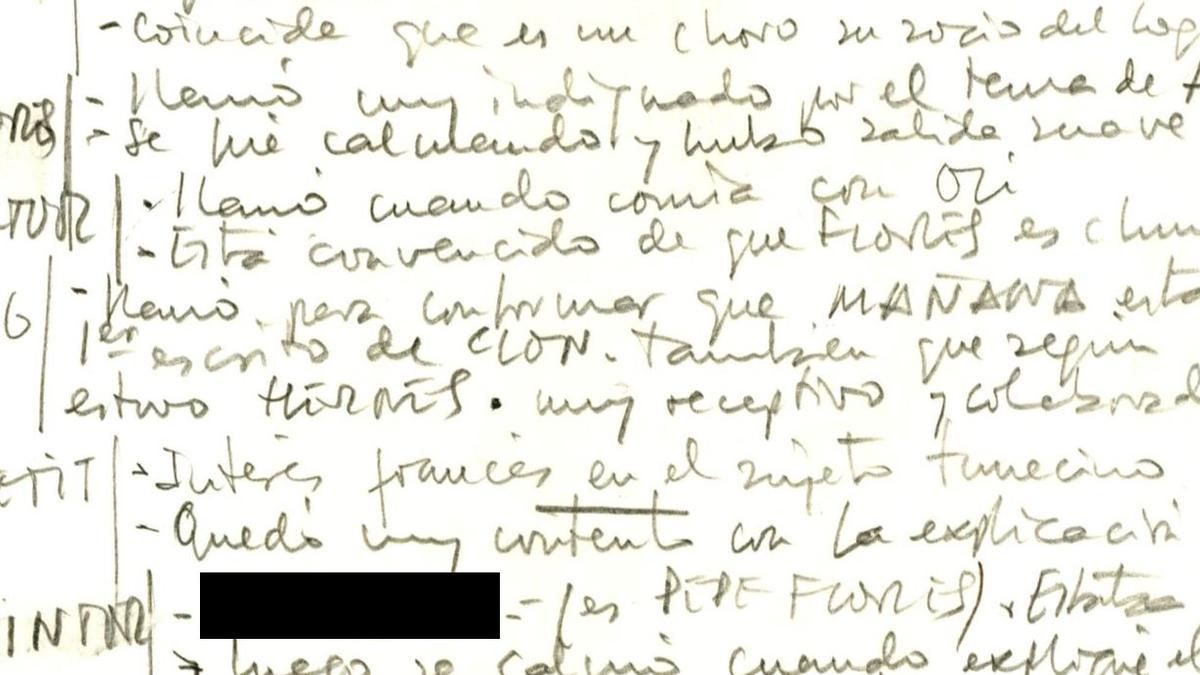 - Coincide que es un choro su socio del
- Llamó muy indignado por el tema de
- Se fué calmando y hubo salida suave
- Llamó cuando comía con Oli
- Está convencido de que FLORES es
- Llamó para confirmar que MAÑANA
1er escrito de CION. También que según
estuvo HERMES. muy receptivo y
- Interés francés en el sujeto tunecino
- Quedó muy contento con la explicación
- (es PEPE FLORES).
luego se calmó cuando expliqué el